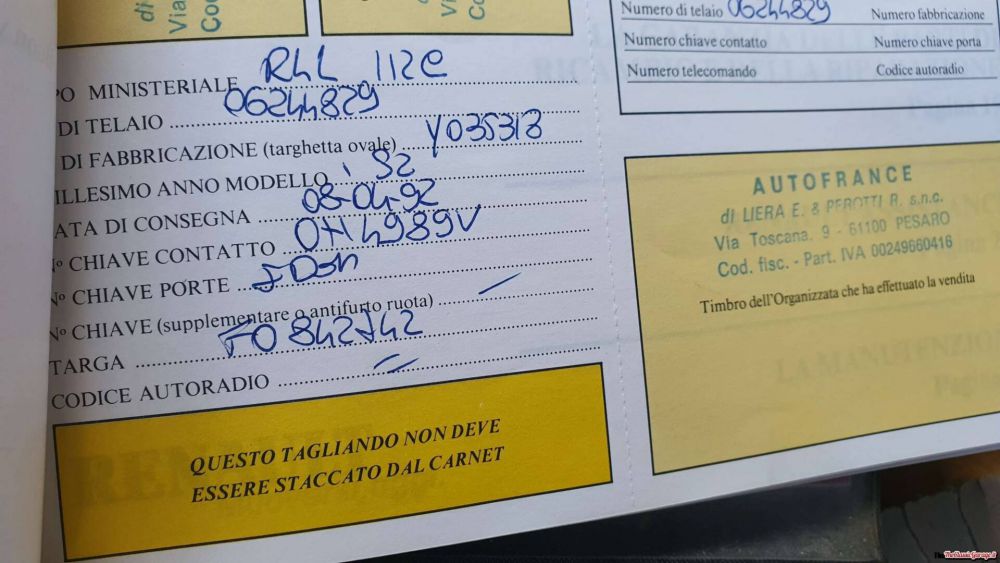 di
Via
Cod
Vi
Co
PO MINISTERIALE R4L 112C
DI TELAIO 06244829
DI FABBRICAZIONE (targhetta ovale) Y035313
ILLESIMO ANNO MODELLO 92
ATA DI CONSEGNA 08-04-92
Nº CHIAVE CONTATTO 0N4989V
Nº CHIAVE PORTE
Nº CHIAVE (supplementare o antifurto ruota)
TARGA FO 842742
CODICE AUTORADIO
QUESTO TAGLIANDO NON DEVE
ESSERE STACCATO DAL CARNET
Numero di telaio 06244829 Numero fabbricazione
Numero chiave contatto Numero chiave porta
Numero telecomando Codice autoradio
AUTOFRANCE
di LIERA E. & PEROTTI R. s.n.c.
Via Toscana, 9 - 61100 PESARO
Cod. fisc. - Part. IVA 00249660416
Timbro dell'Organizzata che ha effettuato la vendita
TheClassicGarage.it